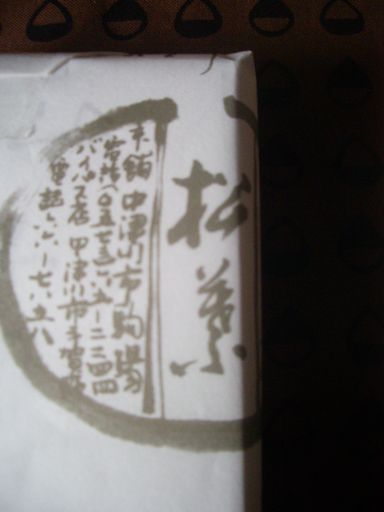 松葉
本舗 中津川市駒場
電話(〇五七三)六五-二三四四
バイパス店 中津川市手賀野
電話六六-七八五八